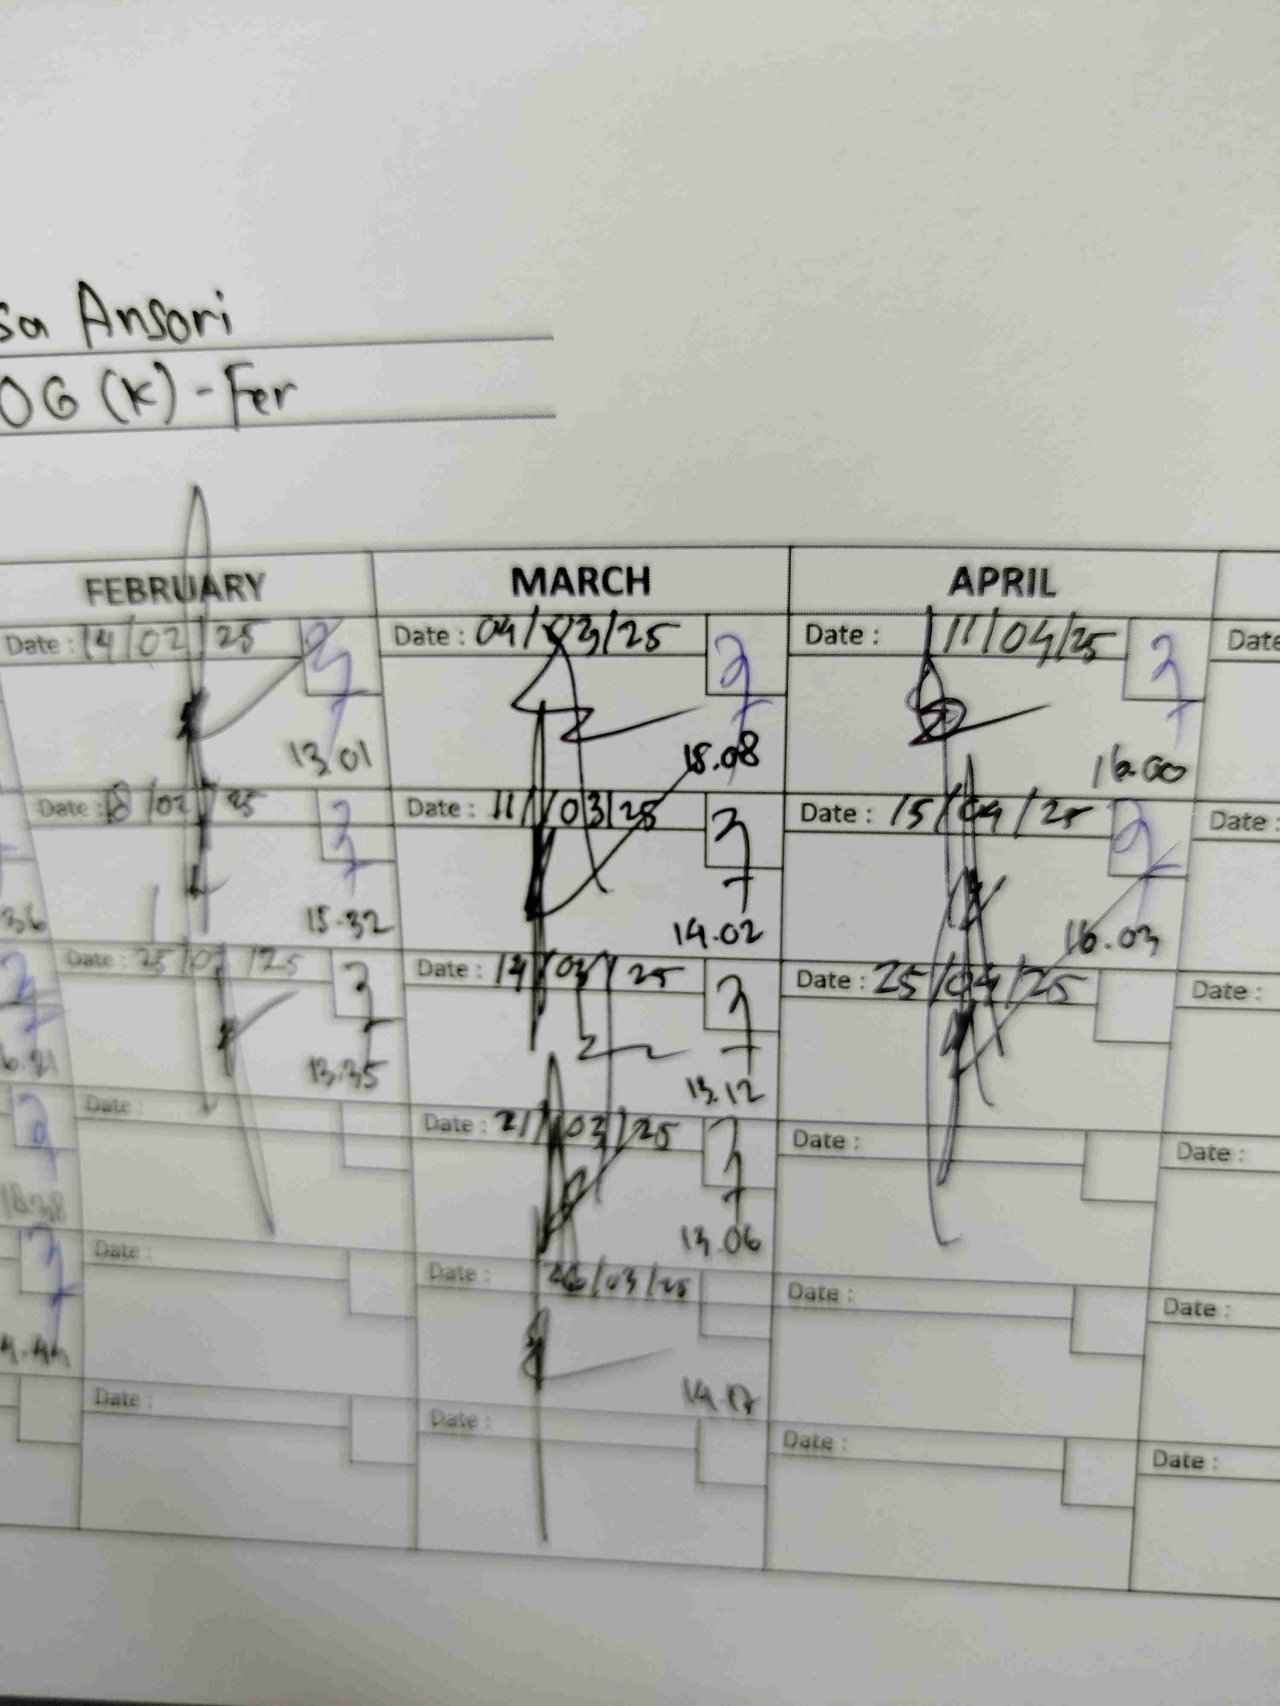 sa Ansori
OG (K) - Fer
FEBRUARY MARCH APRIL
Date : 14/02/25 Date : 04/03/25 Date : 11/04/25 Date
13.01 18.08 16.00
Date : /02/25 Date : 11/03/25 Date : 15/04/25 Date :
36 15.32 14.02 16.03
Date : 25/02/25 Date : 14/03/25 Date : 25/04/25 Date :
6.21 13.35 13.12
Date : Date : 21/03/25 Date : Date :
13.06
Date : Date : 26/03/25 Date : Date :
14.17
Date : Date : Date : Date :